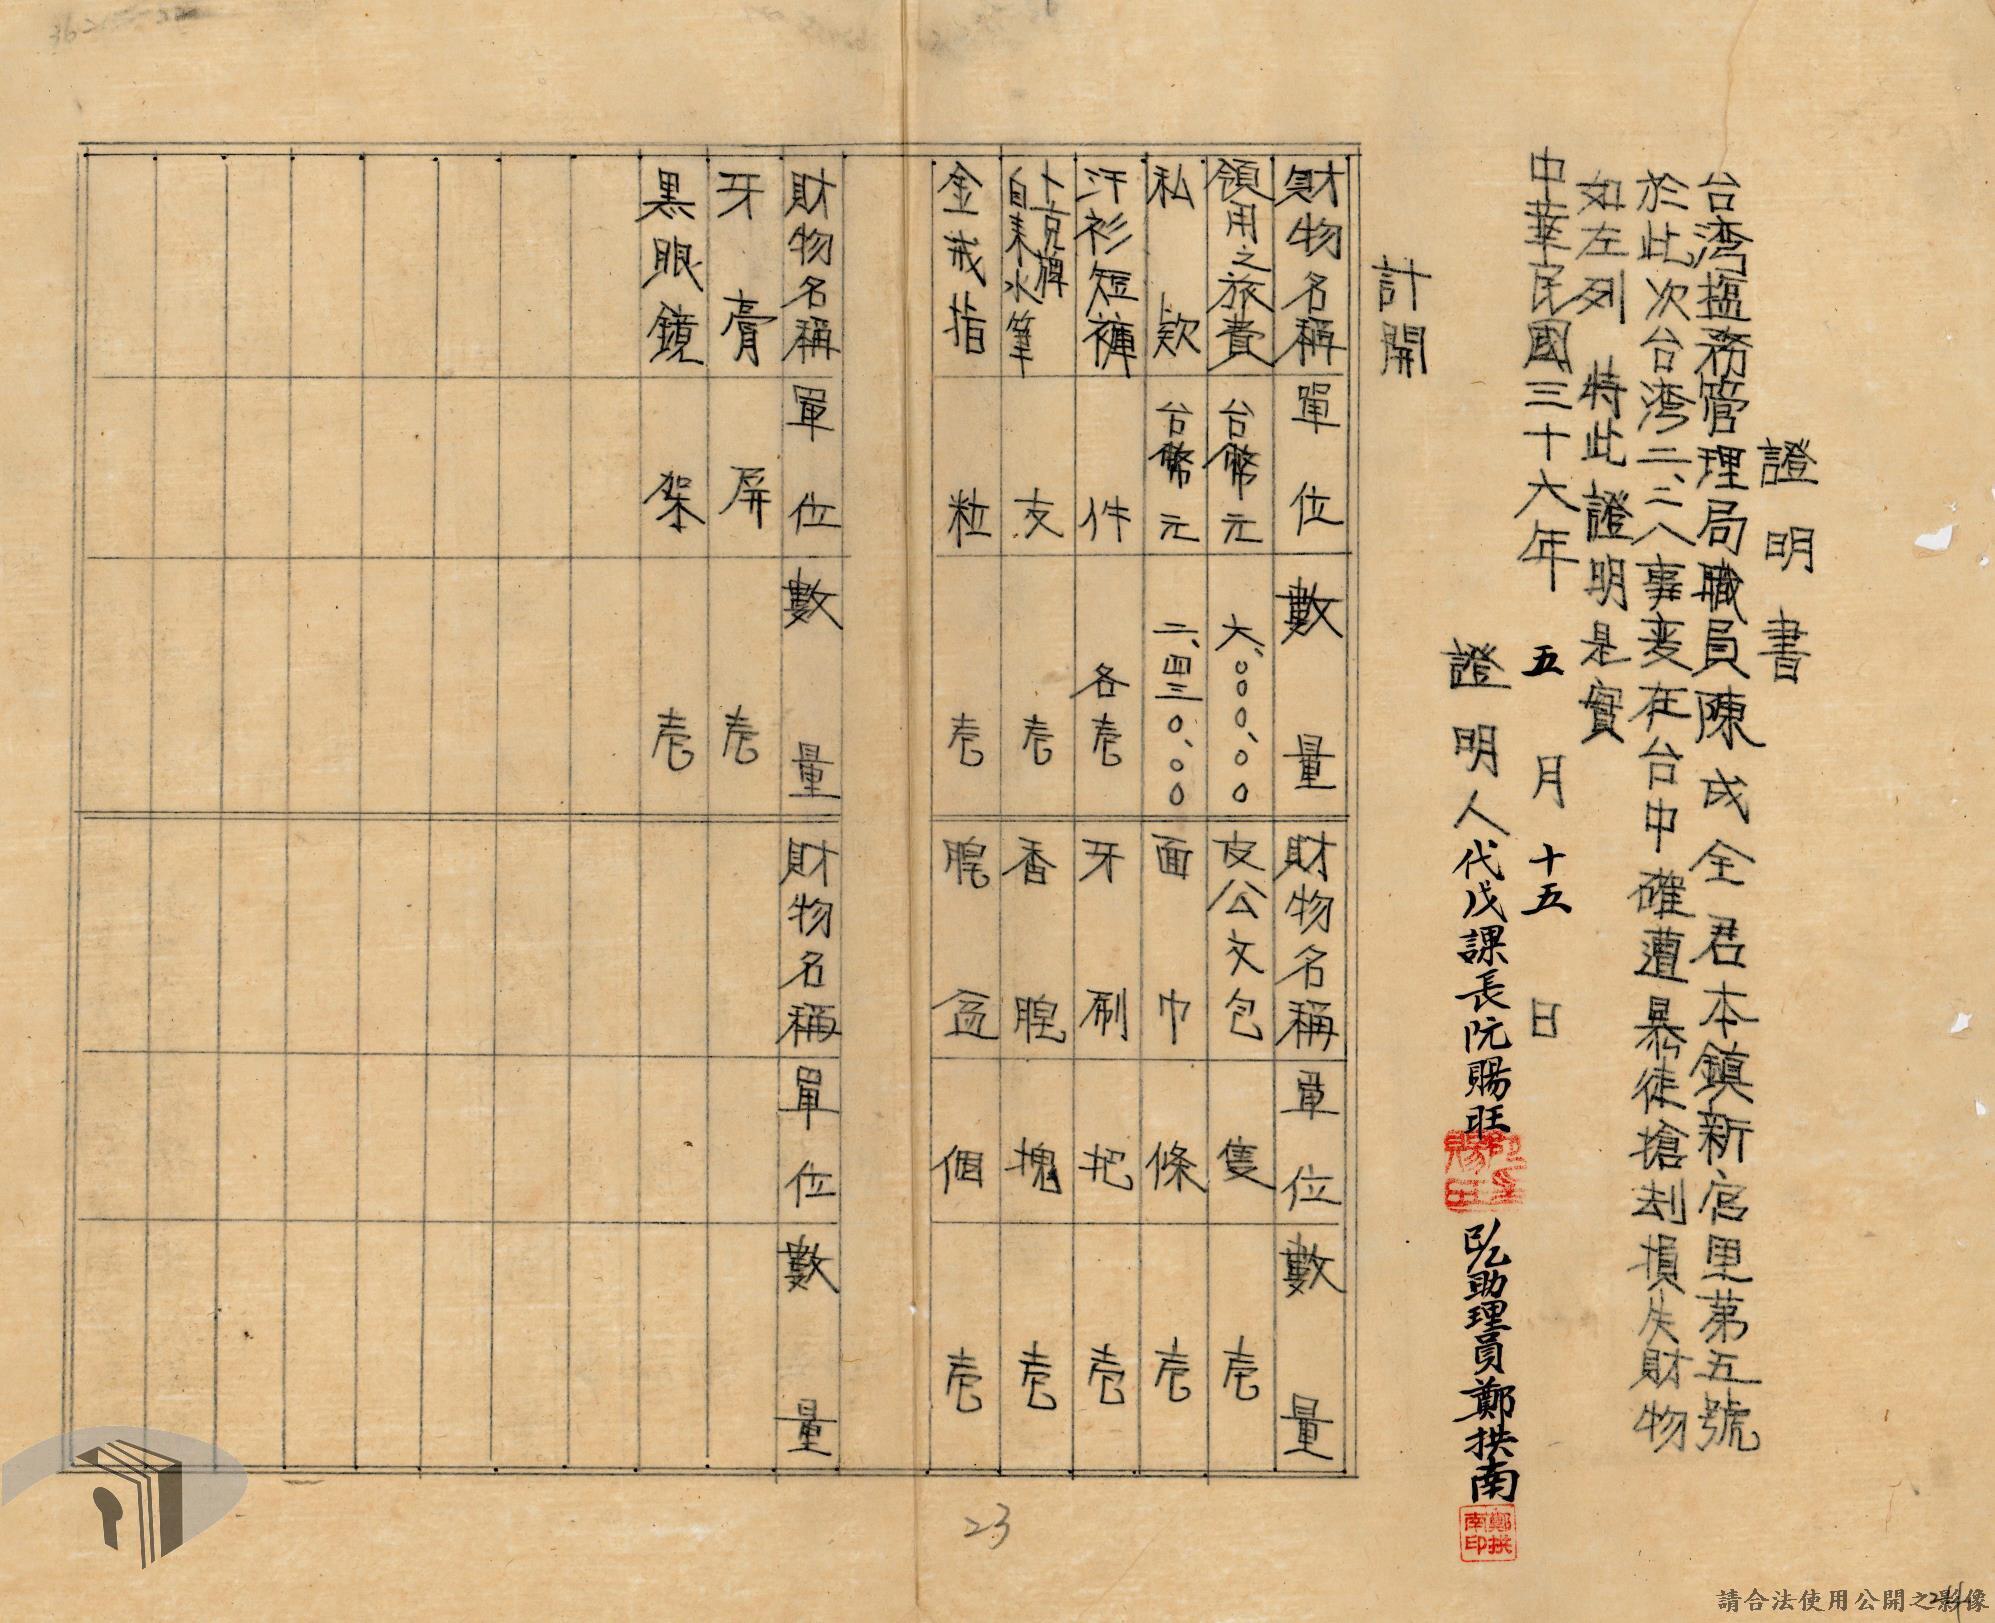 證明書
台湾塩務管理局職員陳戌全君本鎮新宿里第五號
於此次台湾二、二八事変在台中確遭暴徒搶刦損失財物
如左列 特此證明是實
中華民國三十六年 五 月 十五 日
證明人代戊課長阮賜旺
助理員鄭拱南
鄭拱南印
計開
財物名稱 單位 數量 財物名稱 單位 數量
領用之旅費 台幣元 六、〇〇〇、〇〇 皮公文包 隻 壱
私款 台幣元 二、四三〇、〇〇 面巾 條 壱
汗衫短褲 件 各壱 牙刷 把 壱
卜京牌自来水筆 支 壱 香腥 塊 壱
金戒指 粒 壱 腥盒 個 壱
財物名稱 單位 數量 財物名稱 單位 數量
牙膏 屏 壱
黒眼鏡 架 壱
23
請合法使用公開之影像